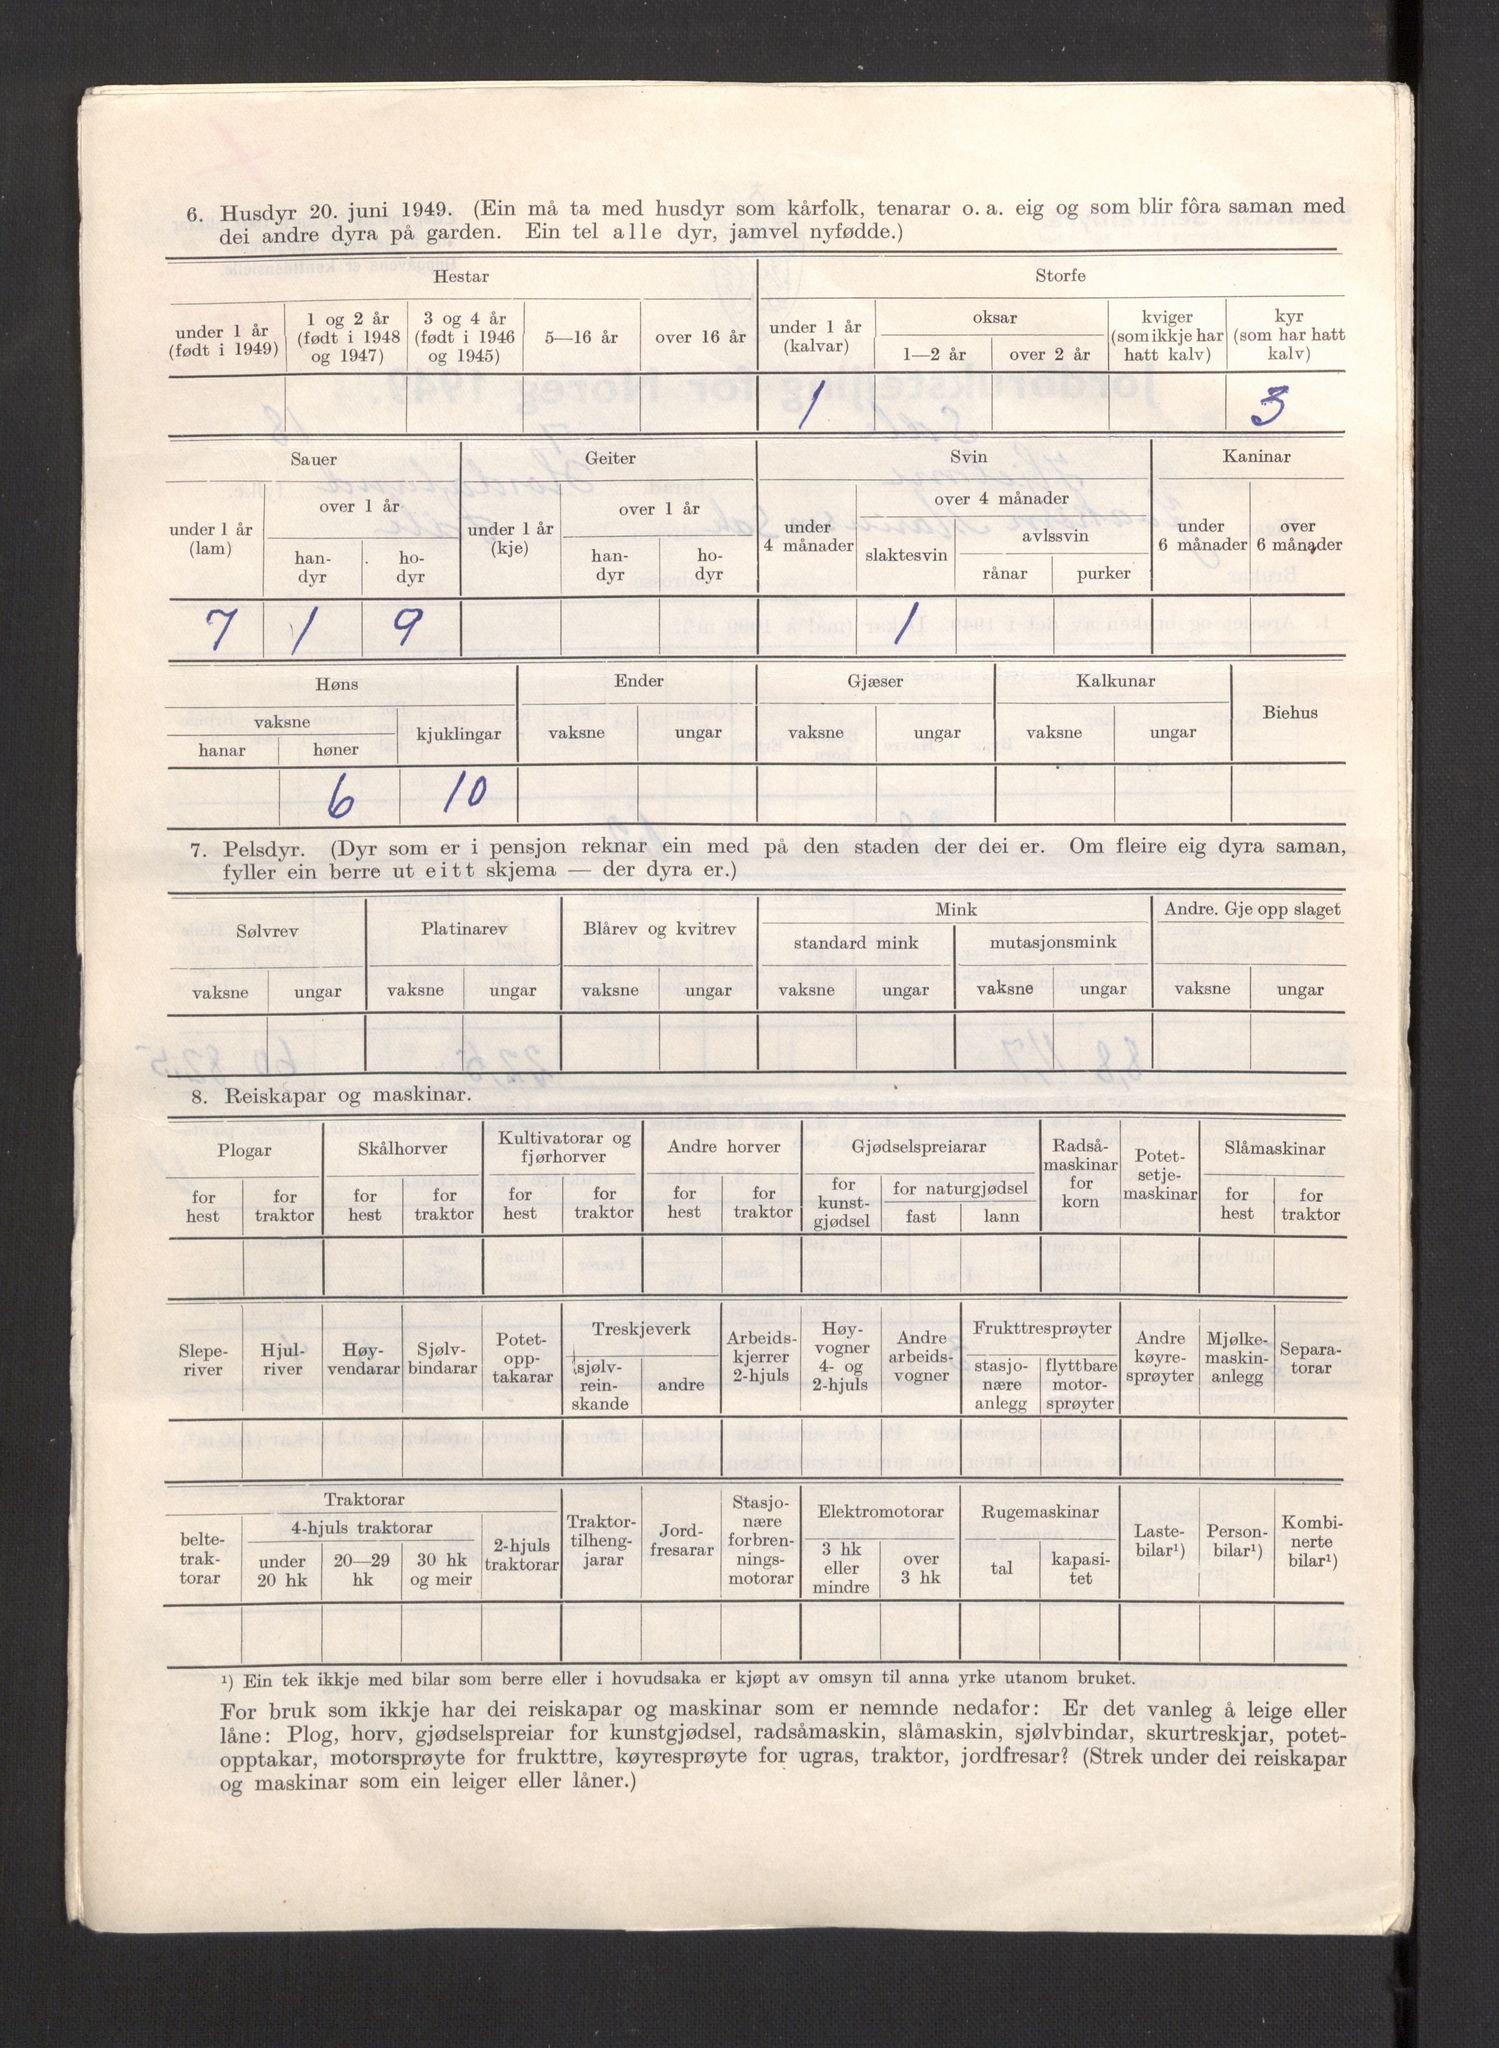 6. Husdyr 20. juni 1949. (Ein må ta med husdyr som kårfolk, tenarar o. a. eig og som blir fôra saman med
dei andre dyra på garden. Ein tel alle dyr, jamvel nyfødde.)
Hestar Storfe
under 1 år (født i 1949) 1 og 2 år (født i 1948 og 1947) 3 og 4 år (født i 1946 og 1945) 5—16 år over 16 år under 1 år (kalvar) oksar 1—2 år over 2 år kviger (som ikkje har hatt kalv) kyr (som har hatt kalv)
1 3
Sauer Geiter Svin Kaninar
under 1 år (lam) over 1 år handyr hodyr under 1 år (kje) over 1 år handyr hodyr under 4 månader over 4 månader slaktesvin avlssvin rånar purker under 6 månader over 6 månader
7 1 9 1
Høns Ender Gjæser Kalkunar Biehus
vaksne hanar høner kjuklingar vaksne ungar vaksne ungar vaksne ungar
6 10
7. Pelsdyr. (Dyr som er i pensjon reknar ein med på den staden der dei er. Om fleire eig dyra saman,
fyller ein berre ut eitt skjema — der dyra er.)
Sølvrev Platinarev Blårev og kvitrev Mink Andre. Gje opp slaget
standard mink mutasjonsmink
vaksne ungar vaksne ungar vaksne ungar vaksne ungar vaksne ungar vaksne ungar
8. Reiskapar og maskinar.
Plogar Skålhorver Kultivatorar og fjørhorver Andre horver Gjødselspreiarar Radsåmaskinar for korn Potetsetjemaskinar Slåmaskinar
for hest for traktor for hest for traktor for hest for traktor for hest for traktor for kunstgjødsel for naturgjødsel fast lann for hest for traktor
Sleperiver Hjulriver Høyvendarar Sjølvbindarar Potetopptakarar Treskjeverk sjølvreinskande andre Arbeidskjerrer 2-hjuls Høyvogner 4- og 2-hjuls Andre arbeidsvogner Frukttresprøyter stasjonære anlegg flyttbare motorsprøyter Andre køyresprøyter Mjølkemaskinanlegg Separatorar
Traktorar
beltetraktorar 4-hjuls traktorar under 20 hk 20—29 hk 30 hk og meir 2-hjuls traktorar Traktortilhengjarar Jordfresarar Stasjonære forbrenningsmotorar Elektromotorar 3 hk eller mindre over 3 hk Rugemaskinar tal kapasitet Lastebilar¹) Personbilar¹) Kombinerte bilar¹)
¹) Ein tek ikkje med bilar som berre eller i hovudsaka er kjøpt av omsyn til anna yrke utanom bruket.
For bruk som ikkje har dei reiskapar og maskinar som er nemnde nedafor: Er det vanleg å leige eller
låne: Plog, horv, gjødselspreiar for kunstgjødsel, radsåmaskin, slåmaskin, sjølvbindar, skurtreskjar, potet-
opptakar, motorsprøyte for frukttre, køyresprøyte for ugras, traktor, jordfresar? (Strek under dei reiskapar
og maskinar som ein leiger eller låner.)